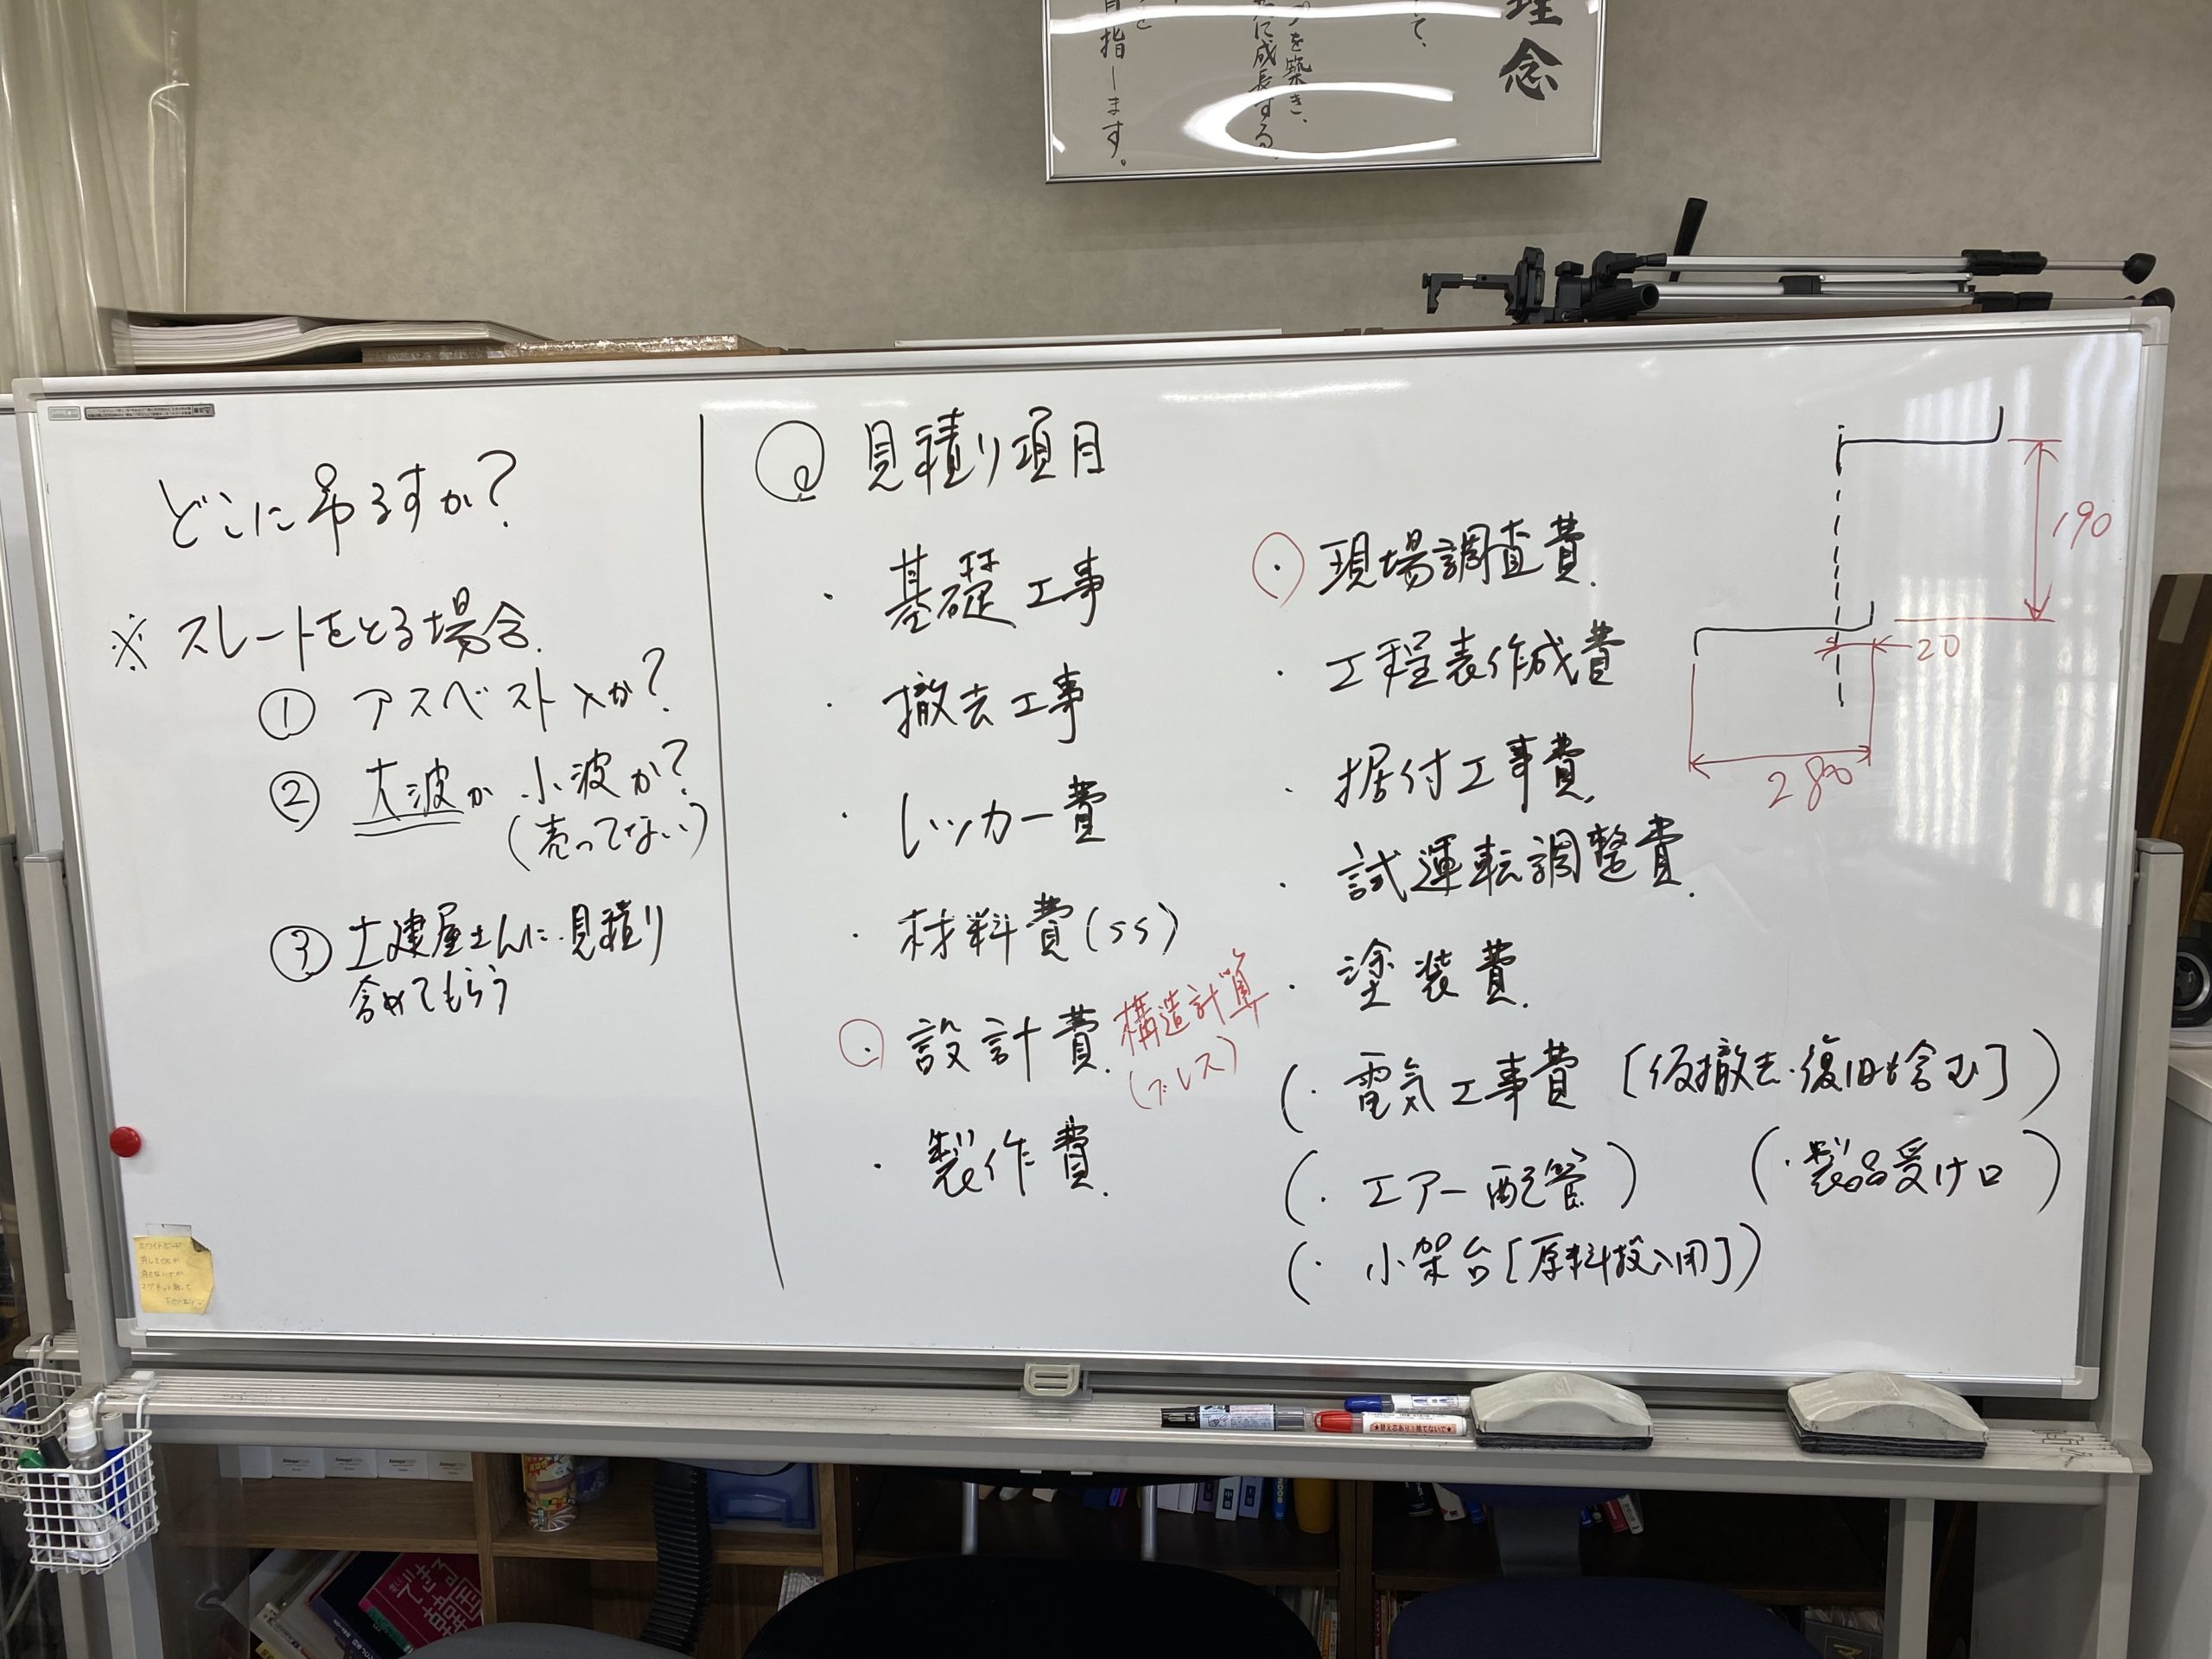 理念
て、
を築き、
に成長する
目指します。
どこに吊るすか?
※ スレートをとる場合.
① アスベスト入か?
② 大波か 小波か?
(売ってない)
③ 土建屋さんに見積り
含めてもらう
見積り項目
・ 基礎工事
・ 撤去工事
・ レッカー費
・ 材料費(SS)
・ 設計費. 構造計算
(ブレス)
・ 製作費.
・ 現場調査費.
・ 工程表作成費
・ 据付工事費.
・ 試運転調整費.
・ 塗装費.
(・ 電気工事費 [仮撤去・復旧も含む])
(・ エアー配管)
(・製品受け口)
(・ 小架台[原料投入用])
190
20
280